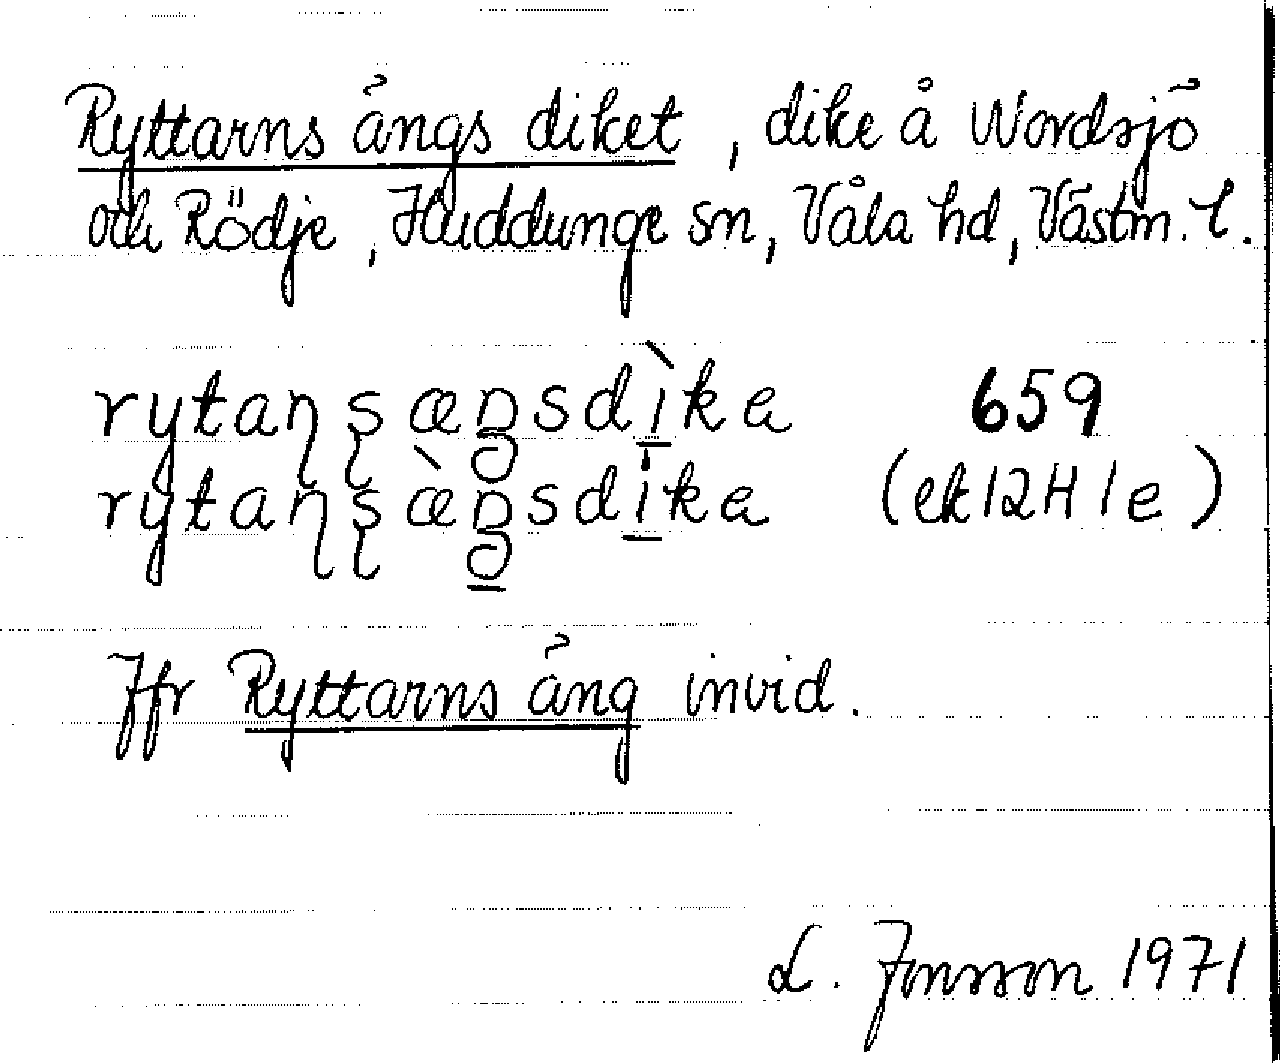 Ryttarns ängs diket, dike å Nordsjö
och Rödje, Huddunge sn, Våla hd, Västm. l.
rytaɳʂæŋsdìka 659
rytaɳʂæ̀ŋsdika (ek 12H 1e)
Jfr Ryttarns äng invid.
L. Jonsson 1971